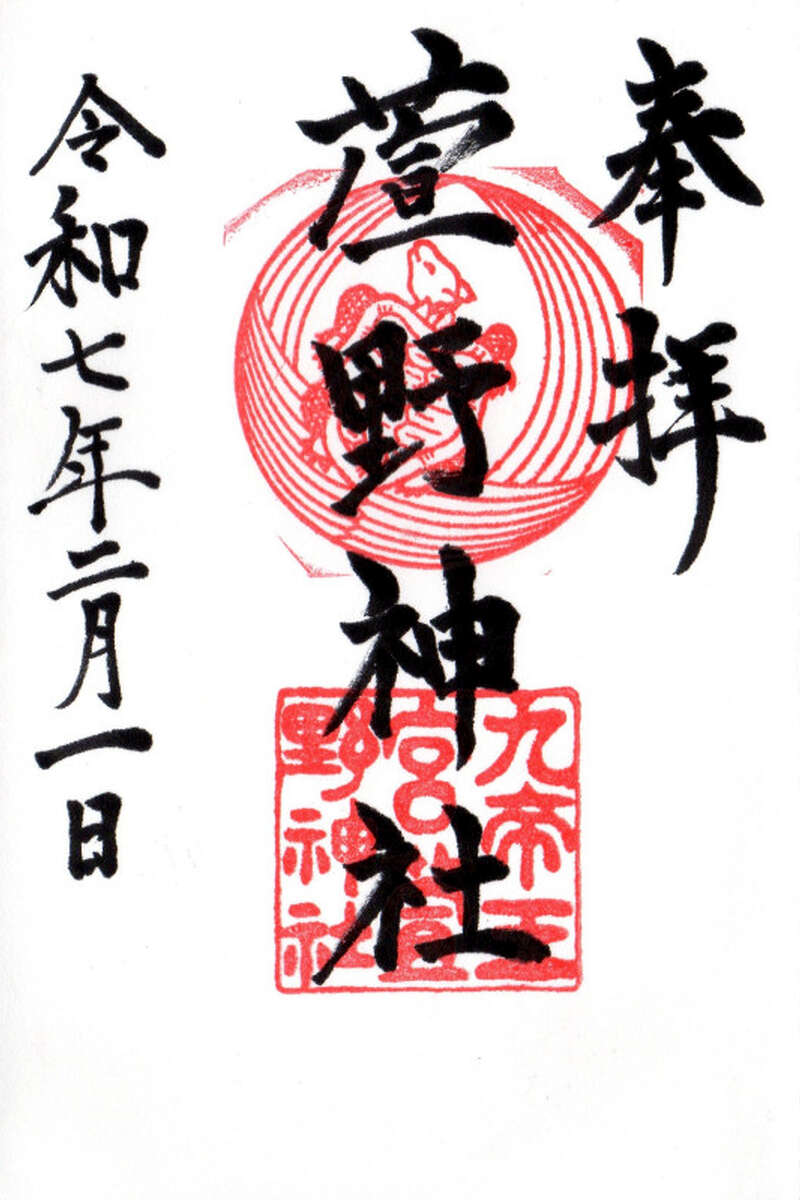 奉拝
萱野神社
令和七年二月一日
九帝王
宮萱
野神社